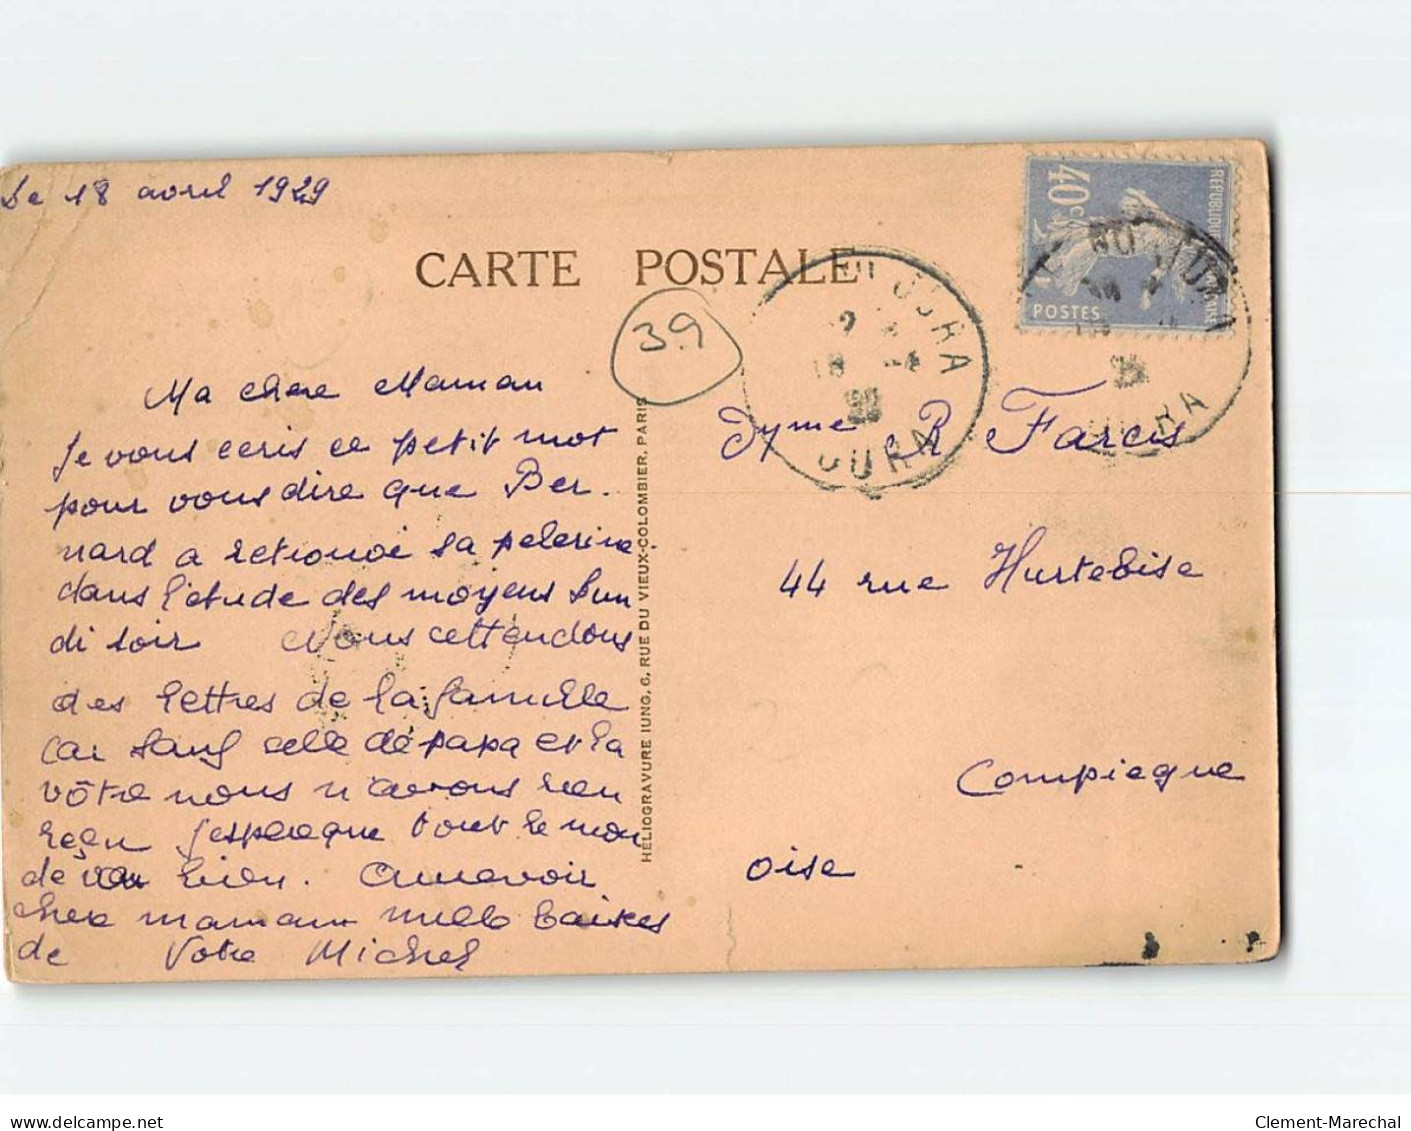 Le 18 avril 1929
CARTE POSTALE
39
40c
REPUBLIQUE
POSTES
JURA
JURA
Ma chere Maman
Je vous ecris ce petit mot
pour vous dire que Ber.
nard a retrouvé sa pelerine
dans l'etude des moyens lun
di soir Nous attendons
des lettres de la famille
car sauf celle de papa et la
vôtre nous n'avons rien
reçu J'espère que tout le mon
de va bien. Aurevoir
chere maman mille baises
de Votre Michel
HELIOGRAVURE IUNG, 6, RUE DU VIEUX-COLOMBIER, PARIS
Mme R Farcis
44 rue Hurtebise
Compiegne
Oise
www.delcampe.net
Clement-Marechal